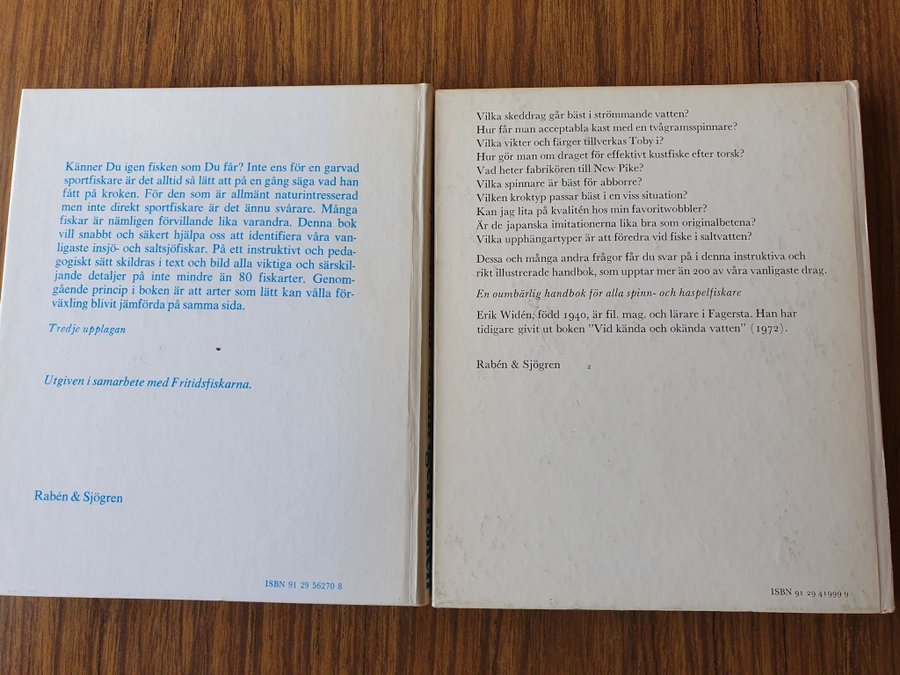 Känner Du igen fisken som Du får? Inte ens för en garvad
sportfiskare är det alltid så lätt att på en gång säga vad han
fått på kroken. För den som är allmänt naturintresserad
men inte direkt sportfiskare är det ännu svårare. Många
fiskar är nämligen förvillande lika varandra. Denna bok
vill snabbt och säkert hjälpa oss att identifiera våra van-
ligaste insjö- och saltsjöfiskar. På ett instruktivt och peda-
gogiskt sätt skildras i text och bild alla viktiga och särskil-
jande detaljer på inte mindre än 80 fiskarter. Genom-
gående princip i boken är att arter som lätt kan vålla för-
växling blivit jämförda på samma sida.
Tredje upplagan
Utgiven i samarbete med Fritidsfiskarna.
Rabén & Sjögren
ISBN 91 29 56270 8
Vilka skeddrag går bäst i strömmande vatten?
Hur får man acceptabla kast med en tvågramsspinnare?
Vilka vikter och färger tillverkas Toby i?
Hur gör man om draget för effektivt kustfiske efter torsk?
Vad heter fabrikören till New Pike?
Vilka spinnare är bäst för abborre?
Vilken kroktyp passar bäst i en viss situation?
Kan jag lita på kvalitén hos min favoritwobbler?
Är de japanska imitationerna lika bra som originalbetena?
Vilka upphängartyper är att föredra vid fiske i saltvatten?
Dessa och många andra frågor får du svar på i denna instruktiva och
rikt illustrerade handbok, som upptar mer än 200 av våra vanligaste drag.
En oumbärlig handbok för alla spinn- och haspelfiskare
Erik Widén, född 1940, är fil. mag. och lärare i Fagersta. Han har
tidigare givit ut boken "Vid kända och okända vatten" (1972).
Rabén & Sjögren 2
ISBN 91 29 41999 9